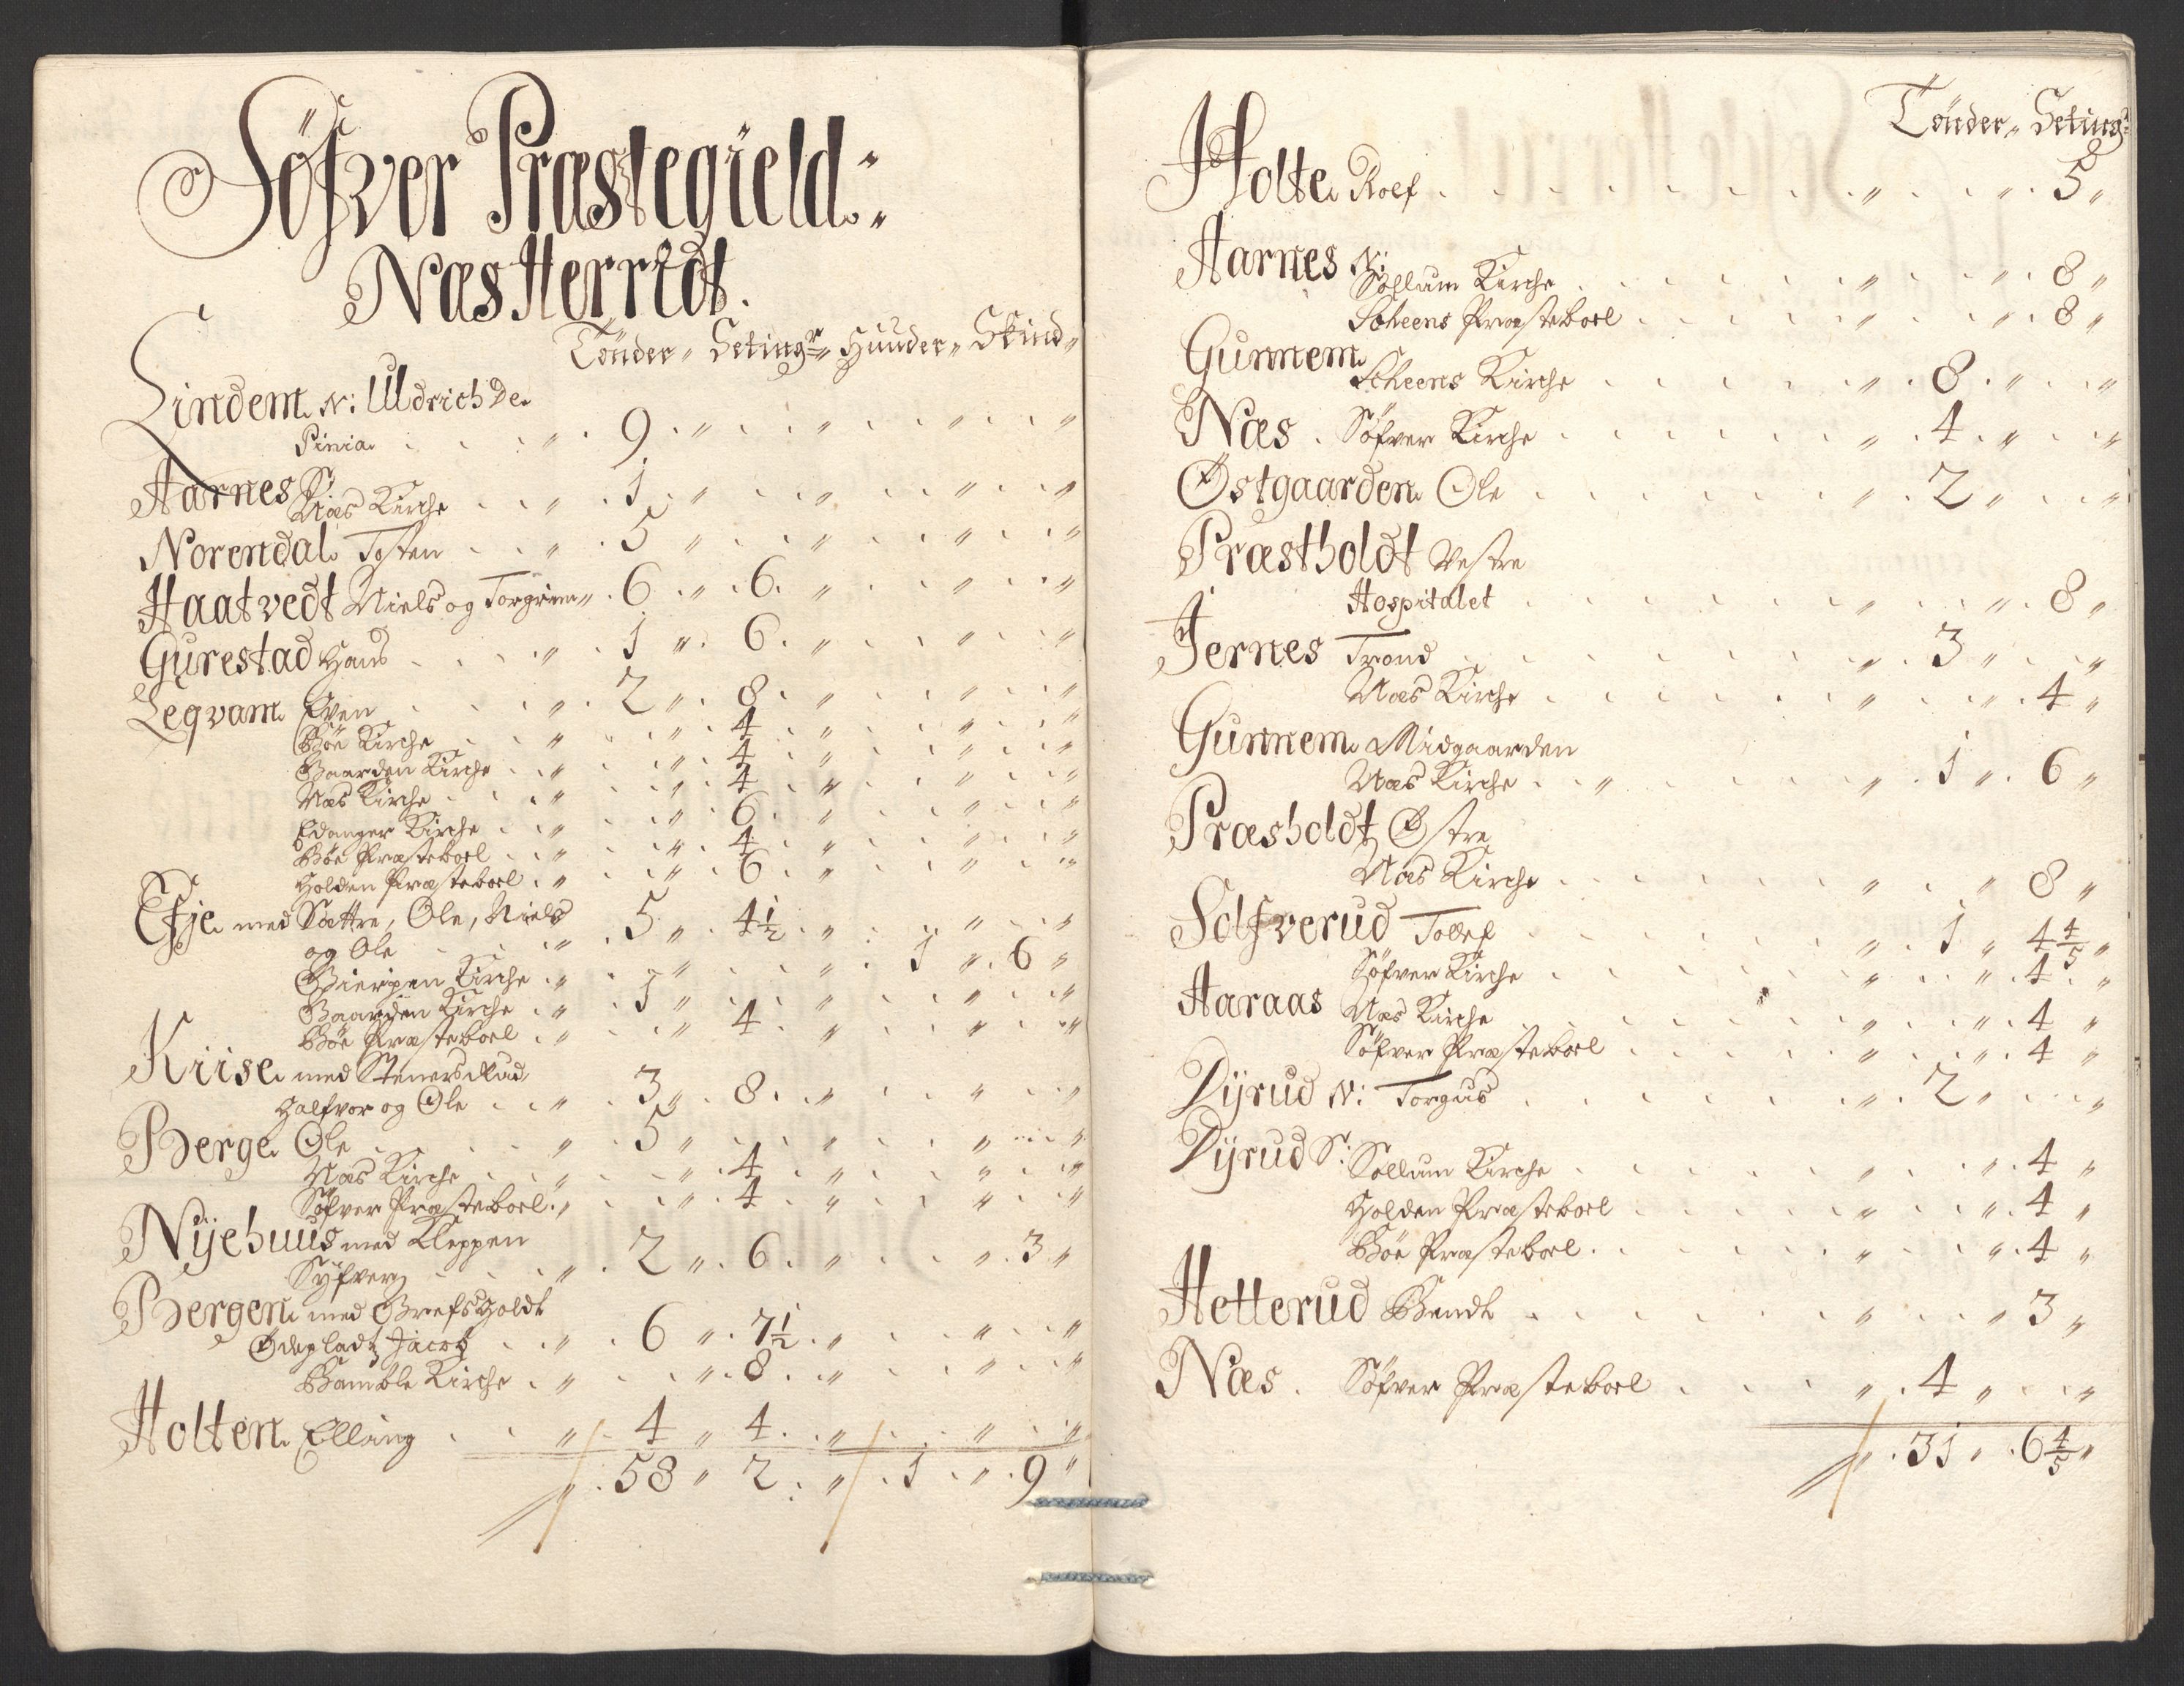 Söfver Præstegield
Næs Herridt.
Tönder Setingr Huuder Skind
Lindem N: Uldrich De
Pinia 9
Aarnes S:
Næs Kirche 1
Norendal Tosten 5
Haatvedt Niels og Torgrim 6 6
Gurestad Hans 1 6
Legvam Even 2 8
Böe Kirche 4
Gaarden Kirche 4
Næs Kirche 4
Edanger Kirche 6
Böe Præsteboel 4
Holden Præsteboel 6
Efje med Sættre, Ole, Niels
og Ole 5 4 1/2
Gierpen Kirche 1 6
Gaarden Kirche 1
Böe Præsteboel 4
Kriise med Stenersrud
Halfvor og Ole 3 8
Berge Ole 5
Næs Kirche 4
Söfver Præsteboel 4
Nÿehuus med Kleppen
Syfver 2 6 3
Bergen med Grefsholdt
Ödepladtz Jacob 6 7 1/2
Bamble Kirche 8
Holten Elling 4 4
58 2 1 9
Tönder Setingr
Holte Roef 5
Aarnes N:
Sollum Kirche 8
Scheens Præsteboel 8
Gunnem
Scheens Kirche 8
Næs Söfver Kirche 4
Östgaarden Ole 2
Præstholdt Vestre
Hospitalet 8
Jernes Trond 3
Næs Kirche 4
Gunnem Midgaarden
Næs Kirche 1 6
Præsholdt Östre
Næs Kirche 8
Solfverud Tollef 1 4 4/5
Söfver Kirche 4
Aaraas Næs Kirche 4
Söfver Præsteboel 4
Dÿrud N: Torgus 2
Dÿrud S: Sollum Kirche 4
Holden Præsteboel 4
Böe Præsteboel 4
Hetterud Bendt 3
Næs Söfver Præsteboel 4
31 6 4/5